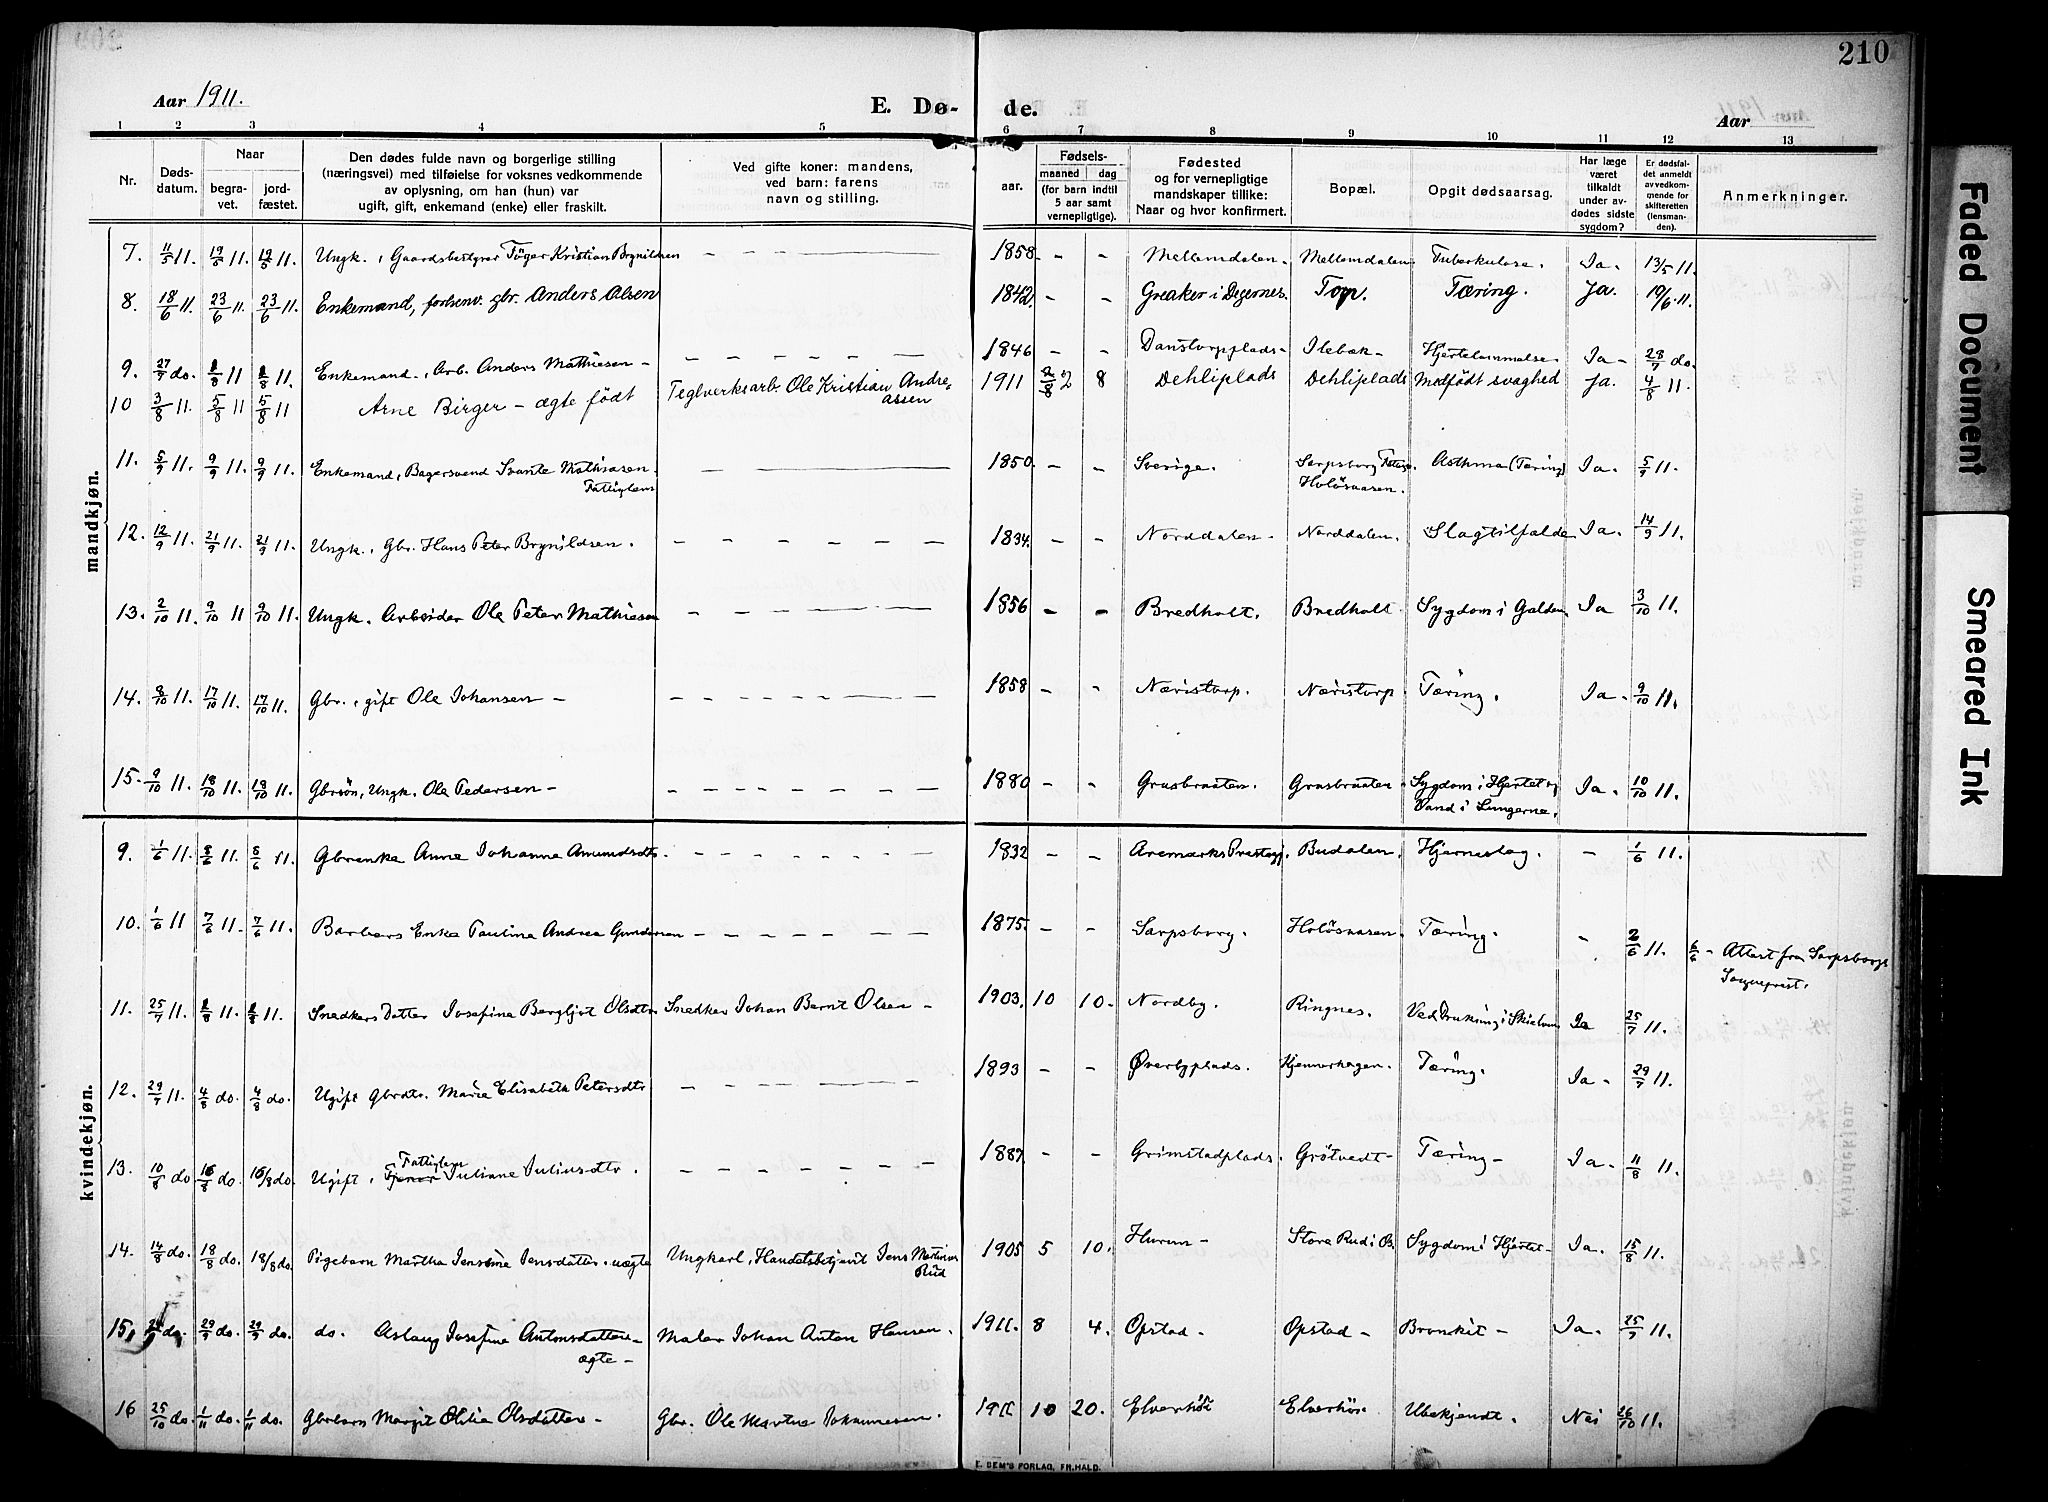 210
Aar 1911.
E. Dø- de.
Aar
1 2 3 4 5 6 7 8 9 10 11 12 13
Nr.
Døds-
datum.
Naar
begra-
vet.
jord-
fæstet.
Den dødes fulde navn og borgerlige stilling
(næringsvei) med tilføielse for voksnes vedkommende
av oplysning, om han (hun) var
ugift, gift, enkemand (enke) eller fraskilt.
Ved gifte koner: mandens,
ved barn: farens
navn og stilling.
aar.
Fødsels-
maaned dag
(for barn indtil
5 aar samt
vernepligtige).
Fødested
og for vernepligtige
mandskaper tillike:
Naar og hvor konfirmert.
Bopæl.
Opgit dødsaarsag.
Har læge
været
tilkaldt
under av-
dødes sidste
sygdom?
Er dødsfal-
det anmeldt
av vedkom-
mende for
skifteretten
(lensman-
den).
Anmerkninger.
mandkjøn.
7. 11/5 11. 19/5 11. 19/5 11. Ungk., Gaardsbestyrer Kristian Brynildsen — 1858 - - Mellemdalen. Mellemdalen. Tuberkulose. Ja. 13/5 11.
8. 18/6 11. 23/6 11. 23/6 11. Enkemand, forhenv. gbr. Anders Olsen 1842. - - Greaker i Degernes. Torp. Tæring. Ja. 19/6. 11.
9. 27/7 do. 1/8 11 1/8 11. Enkemand., Arb. Anders Mathiesen — 1846 - - Danstorpplads- Ilebæk- Hjertelammelse Ja - 28/7 do.
10 3/8 11. 5/8 11 5/8 11 Arne Birger - ægte født Teglverksarb. Ole Kristian Andre-
assen 1911 2 8 Dehliplads Dehliplads Medfødt svaghed Ja. 4/8 11.
11. 5/9 11. 9/9 11. 9/9 11. Enkemand, Bagersvend Svante Mathiasen.
Fattiglem — 1850. - - Sverige. Sarpsborg
Holösaasen. Asthma (Tæring) Ja. 5/9 11.
12. 12/9 11. 21/9 11. 21/9 11. Ungk., Gbr. Hans Peter Brynildsen. — 1834. - - Norddalen. Norddalen. Slagtilfælde Ja. 14/9 11.
13. 2/10 11. 9/10 11 9/10 11. Ungk. Arbeider Ole Peter Mathiesen — 1856 - - Bredholt. Bredholt. Sygdom i Galden Ja 3/10 11.
14. 8/10 11. 17/10 11. 17/10 11. Gbr., gift Ole Johansen — 1858 - - Næristorp. Næristorp. Tæring. Ja - 9/10 11.
15. 9/10 11. 18/10 11. 18/10 11. Gbrsön, Ungk. Ole Pedersen — 1880 - - Grusbraaten. Grusbraaten. Sygdom i Hjertet og
Vand i Lungerne. Ja. 10/10 11.
kvindekjøn.
9. 1/6 11. 8/6 11. 8/6 11. Gbrenke Anne Johanne Amundsdtr. — 1832 - - Aremarks Prestegj. Budalen. Hjerneslag. - 1/6 11.
10. 1/6 11 7/6 11. 7/6 11. Barbers Enke Paulina Andrea Gundersen — 1875. - - Sarpsborg. Holösaasen. Tæring. - 2/6 11. 6/6 - Attest fra Sarpsborgs
Sogneprest.
11. 25/7 11. 1/8 11. 1/8 11. Snedkers Datter Josefine Bergljot Olsdtr. Snedker Johan Bernt Olsen - 1903. 10 10. Nordby. Ringnes. Ved Drukning i Ja 25/7 11.
12. 29/7 11. 4/8 do. 4/8 do. Ugift Gbrdtr. Marie Elisabeth Petersdtr — 1893 - - Øverbyplads. Tæring. Ja - 29/7 11.
13. 10/8 do 16/8 do. 16/8 do. Ugift, Fattiglem Juliane Juliusdtr. — 1887. - - Grimstadplads. Grötvedt- Tæring- Ja - 11/8 11.
14. 14/8 do. 18/8 do. 18/8 do. Pigebarn Martha Jensine Jensdatter. uægte Ungkarl, Handelsbetjent Jens Martinius
Rud 1905 5 10. Hurum- Store Rud i Sygdom i Hjertet- Ja. 15/8 11.
15. 24/9 do. 29/9 do. 29/9 do. do. Aslaug Josefine Antonsdatter-
ægte- Maler Johan Anton Hansen. 1911. 8 4. Opstad. Opstad - Bronkit - Ja. 25/9 11.
16 25/10 do. 1/11 do. 1/11 do. Gbrbarn Margit Otilia Olsdatter- Gbr. Ole Martus Johannesen. 1911 10 20. Elverhöi Elverhöi. Ubekjendt. Nei 26/10 11.
E. SEM'S FORLAG, FR.HALD.
Faded Document
Smeared Ink